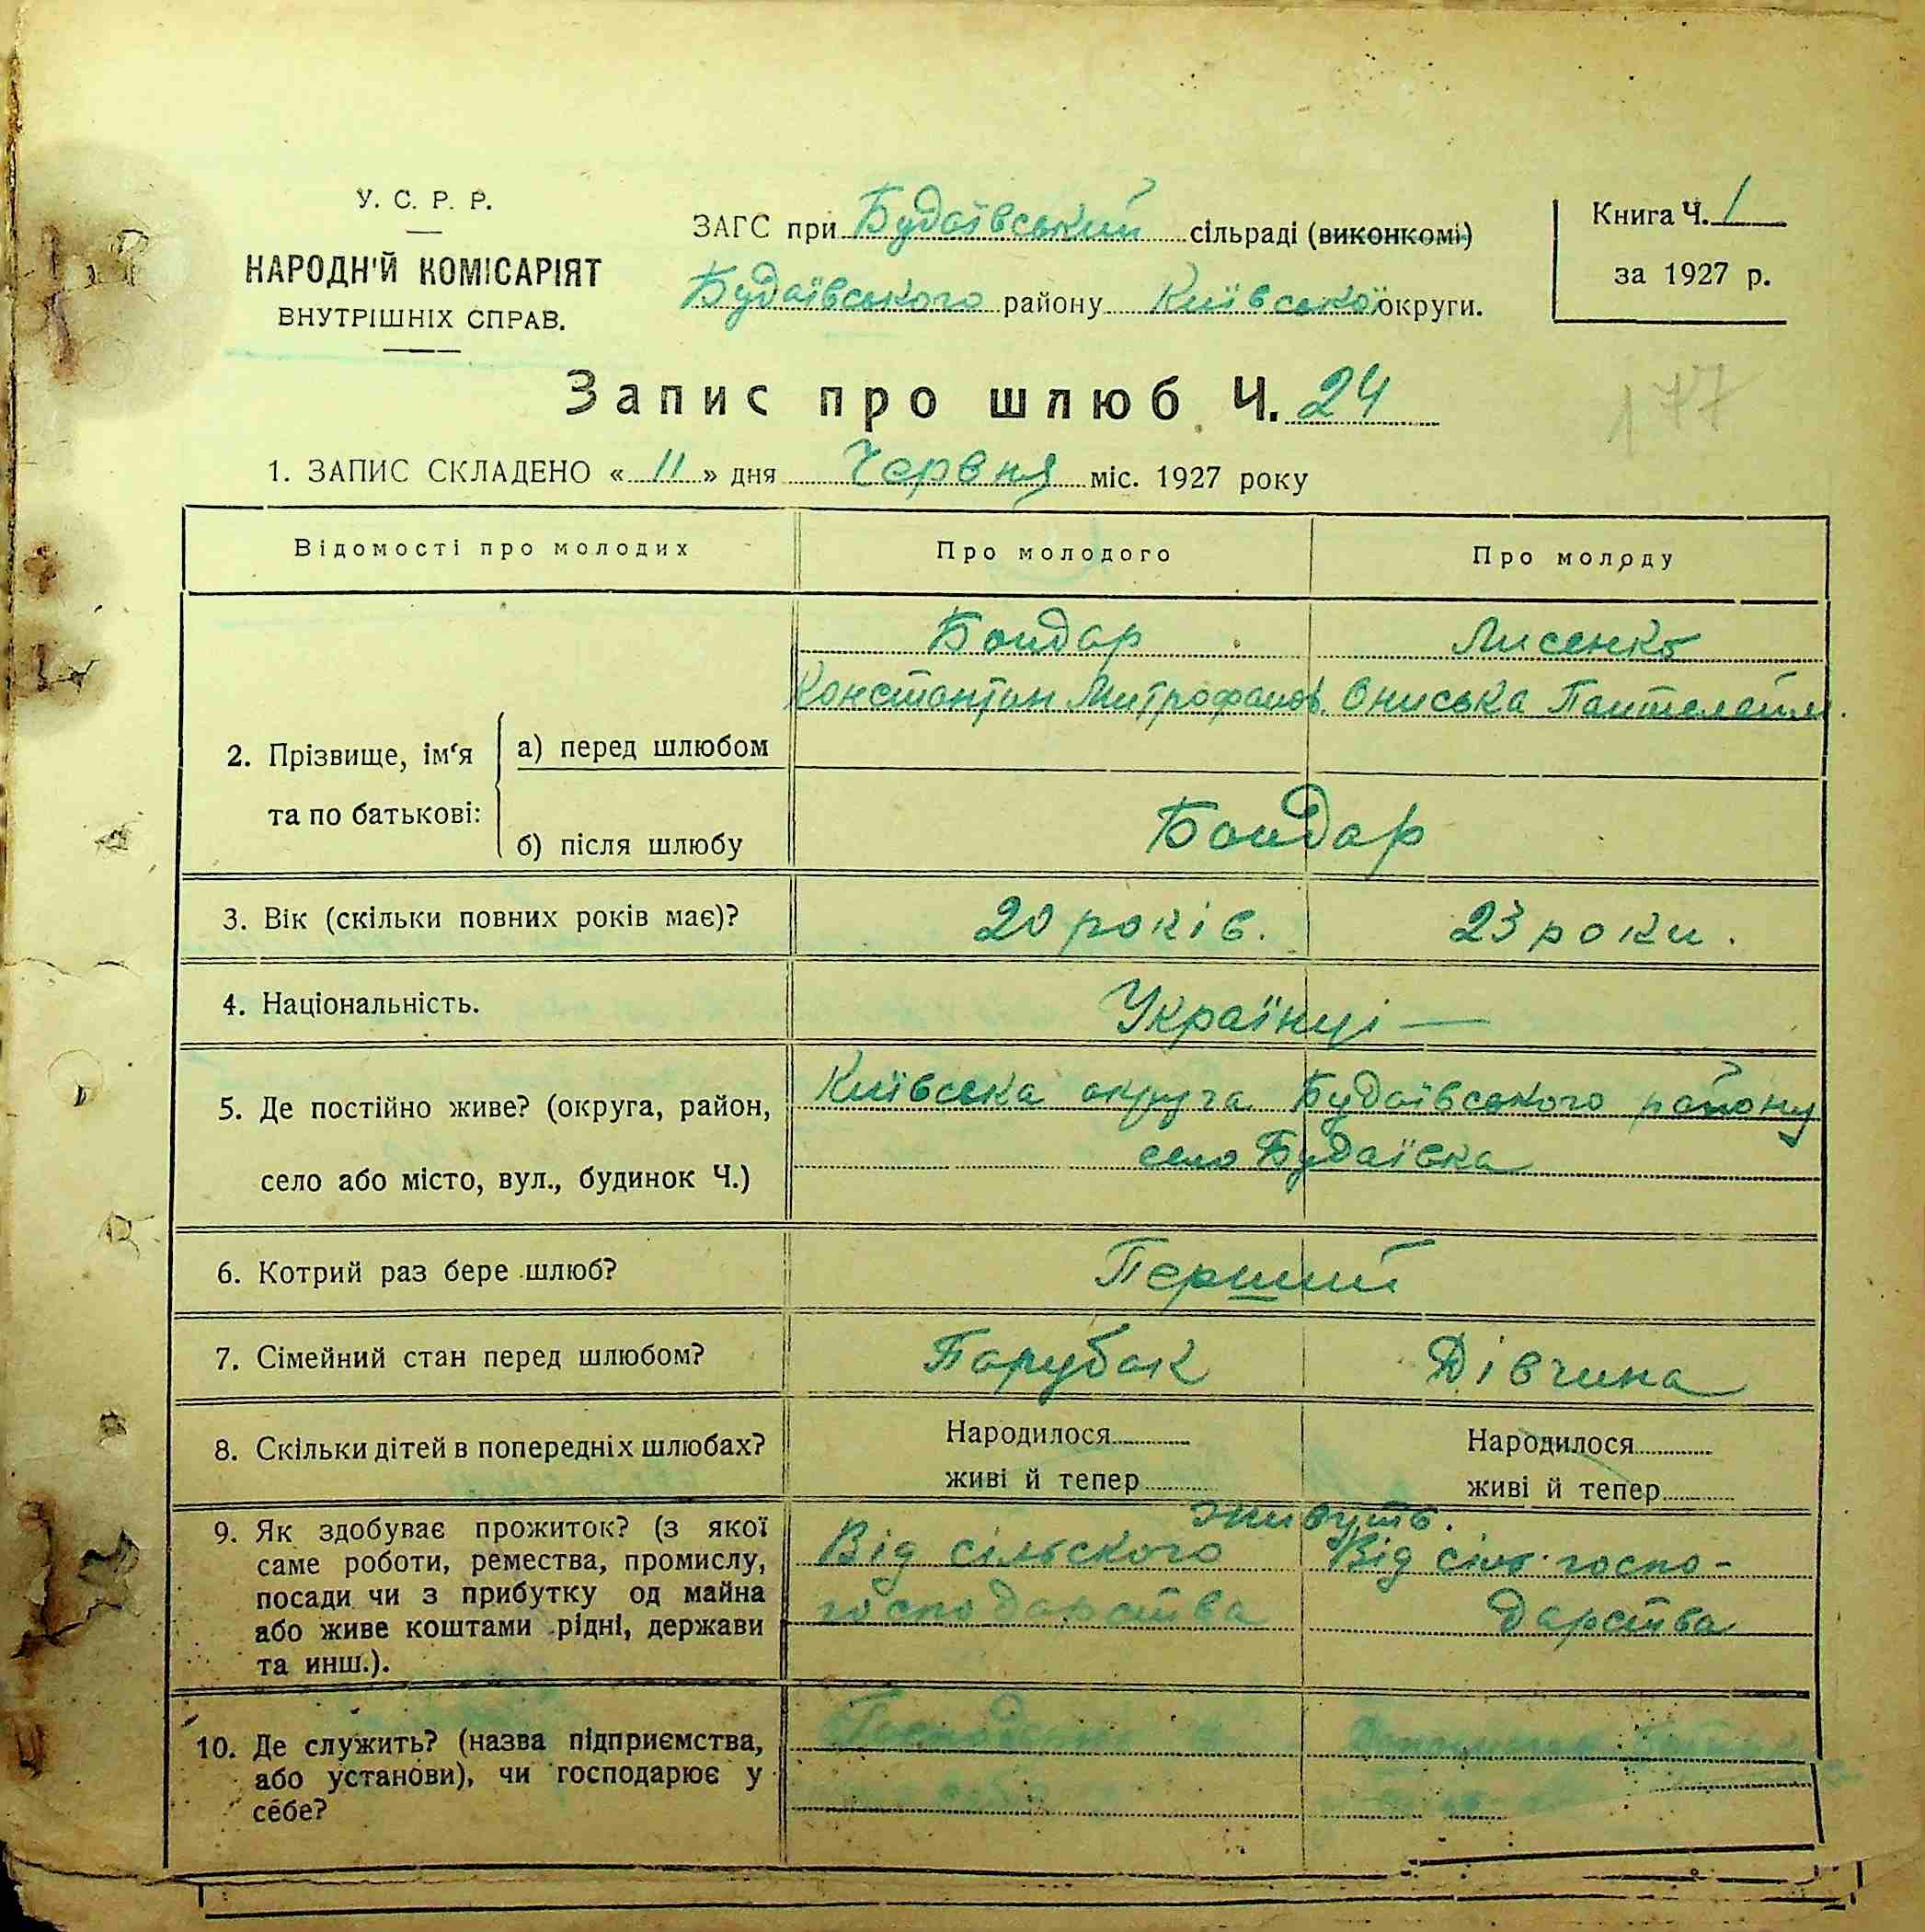 У. С. Р. Р.
НАРОДН'Й КОМІСАРІЯТ
ВНУТРІШНІХ СПРАВ.
ЗАГС при Будаївський сільраді (виконкомі)
Будаївського району Київської округи.
Книга Ч. 1
за 1927 р.
Запис про шлюб Ч. 24
177
1. ЗАПИС СКЛАДЕНО « 11 » дня Червня міс. 1927 року
Відомості про молодих
Про молодого
Про молоду
2. Прізвище, ім‘я
та по батькові:
а) перед шлюбом
Бондар
Константин Митрофанов.
Лисенко
Ониська Пантелейм.
б) після шлюбу
Бондар
3. Вік (скільки повних років має)?
20 років.
23 роки.
4. Національність.
Українці —
5. Де постійно живе? (округа, район,
село або місто, вул., будинок Ч.)
Київська округа Будаївського району
село Будаївка
6. Котрий раз бере шлюб?
Перший
7. Сімейний стан перед шлюбом?
Парубок
Дівчина
8. Скільки дітей в попередніх шлюбах?
Народилося
живі й тепер
Народилося
живі й тепер
9. Як здобуває прожиток? (з якої
саме роботи, ремества, промислу,
посади чи з прибутку од майна
або живе коштами рідні, держави
та инш.).
живуть.
Від сільського
господарства
Від сіль. госпо-
дарства
10. Де служить? (назва підприємства,
або установи), чи господарює у
себе?